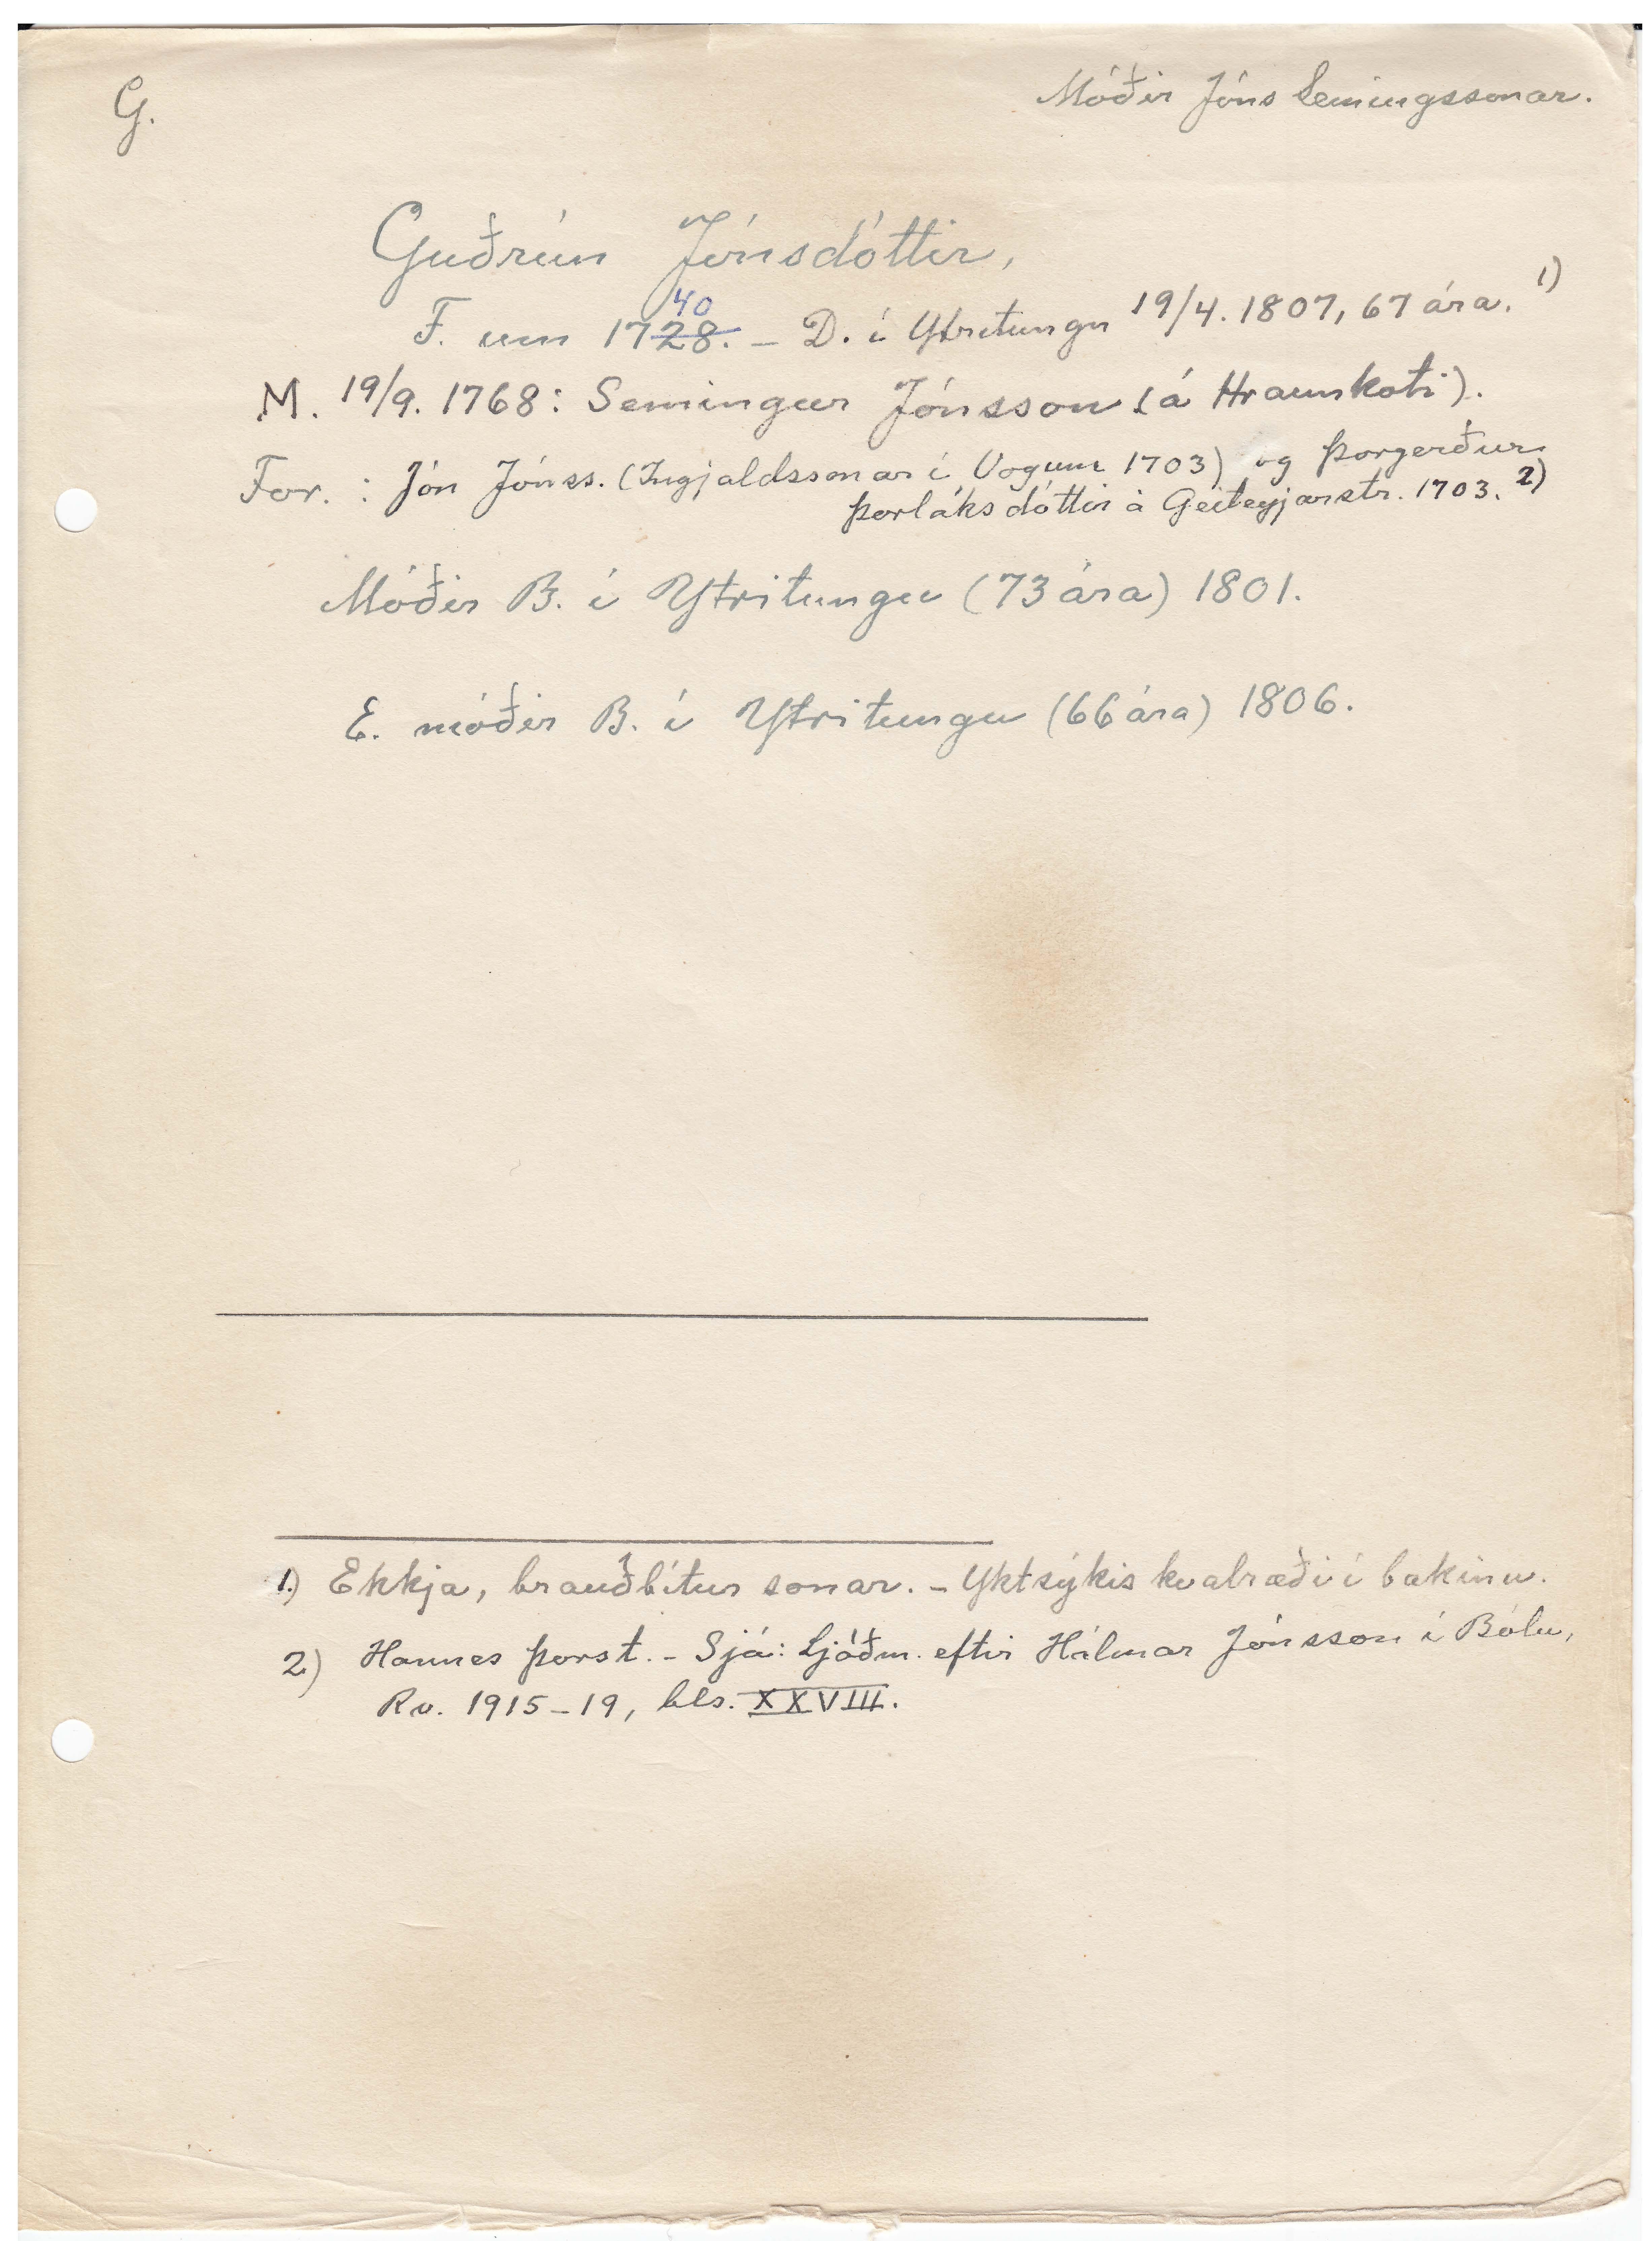 G.
Móðir Jóns Semingssonar.
Guðrún Jónsdóttir,
40
F. um 1728. - D. í Ytritungu 19/4. 1807, 67 ára. 1)
M. 19/9. 1768: Semingur Jónsson (á Hraunkoti).
For. : Jón Jónss. (Ingjaldssonar í Vogum 1703) og Þorgerður
Þorláksdóttir á Geiteyjarstr. 1703. 2)
Móðir B. í Ytritungu (73 ára) 1801.
E. móðir B. í Ytritungu (66 ára) 1806.
1) Ekkja, brauðbítur sonar. - Yktsýkis kvalræði í bakinu.
2) Hannes Þorst. - Sjá: Ljóðm. eftir Hálmar Jónsson í Bólu,
Rv. 1915-19, bls. XXVIII.